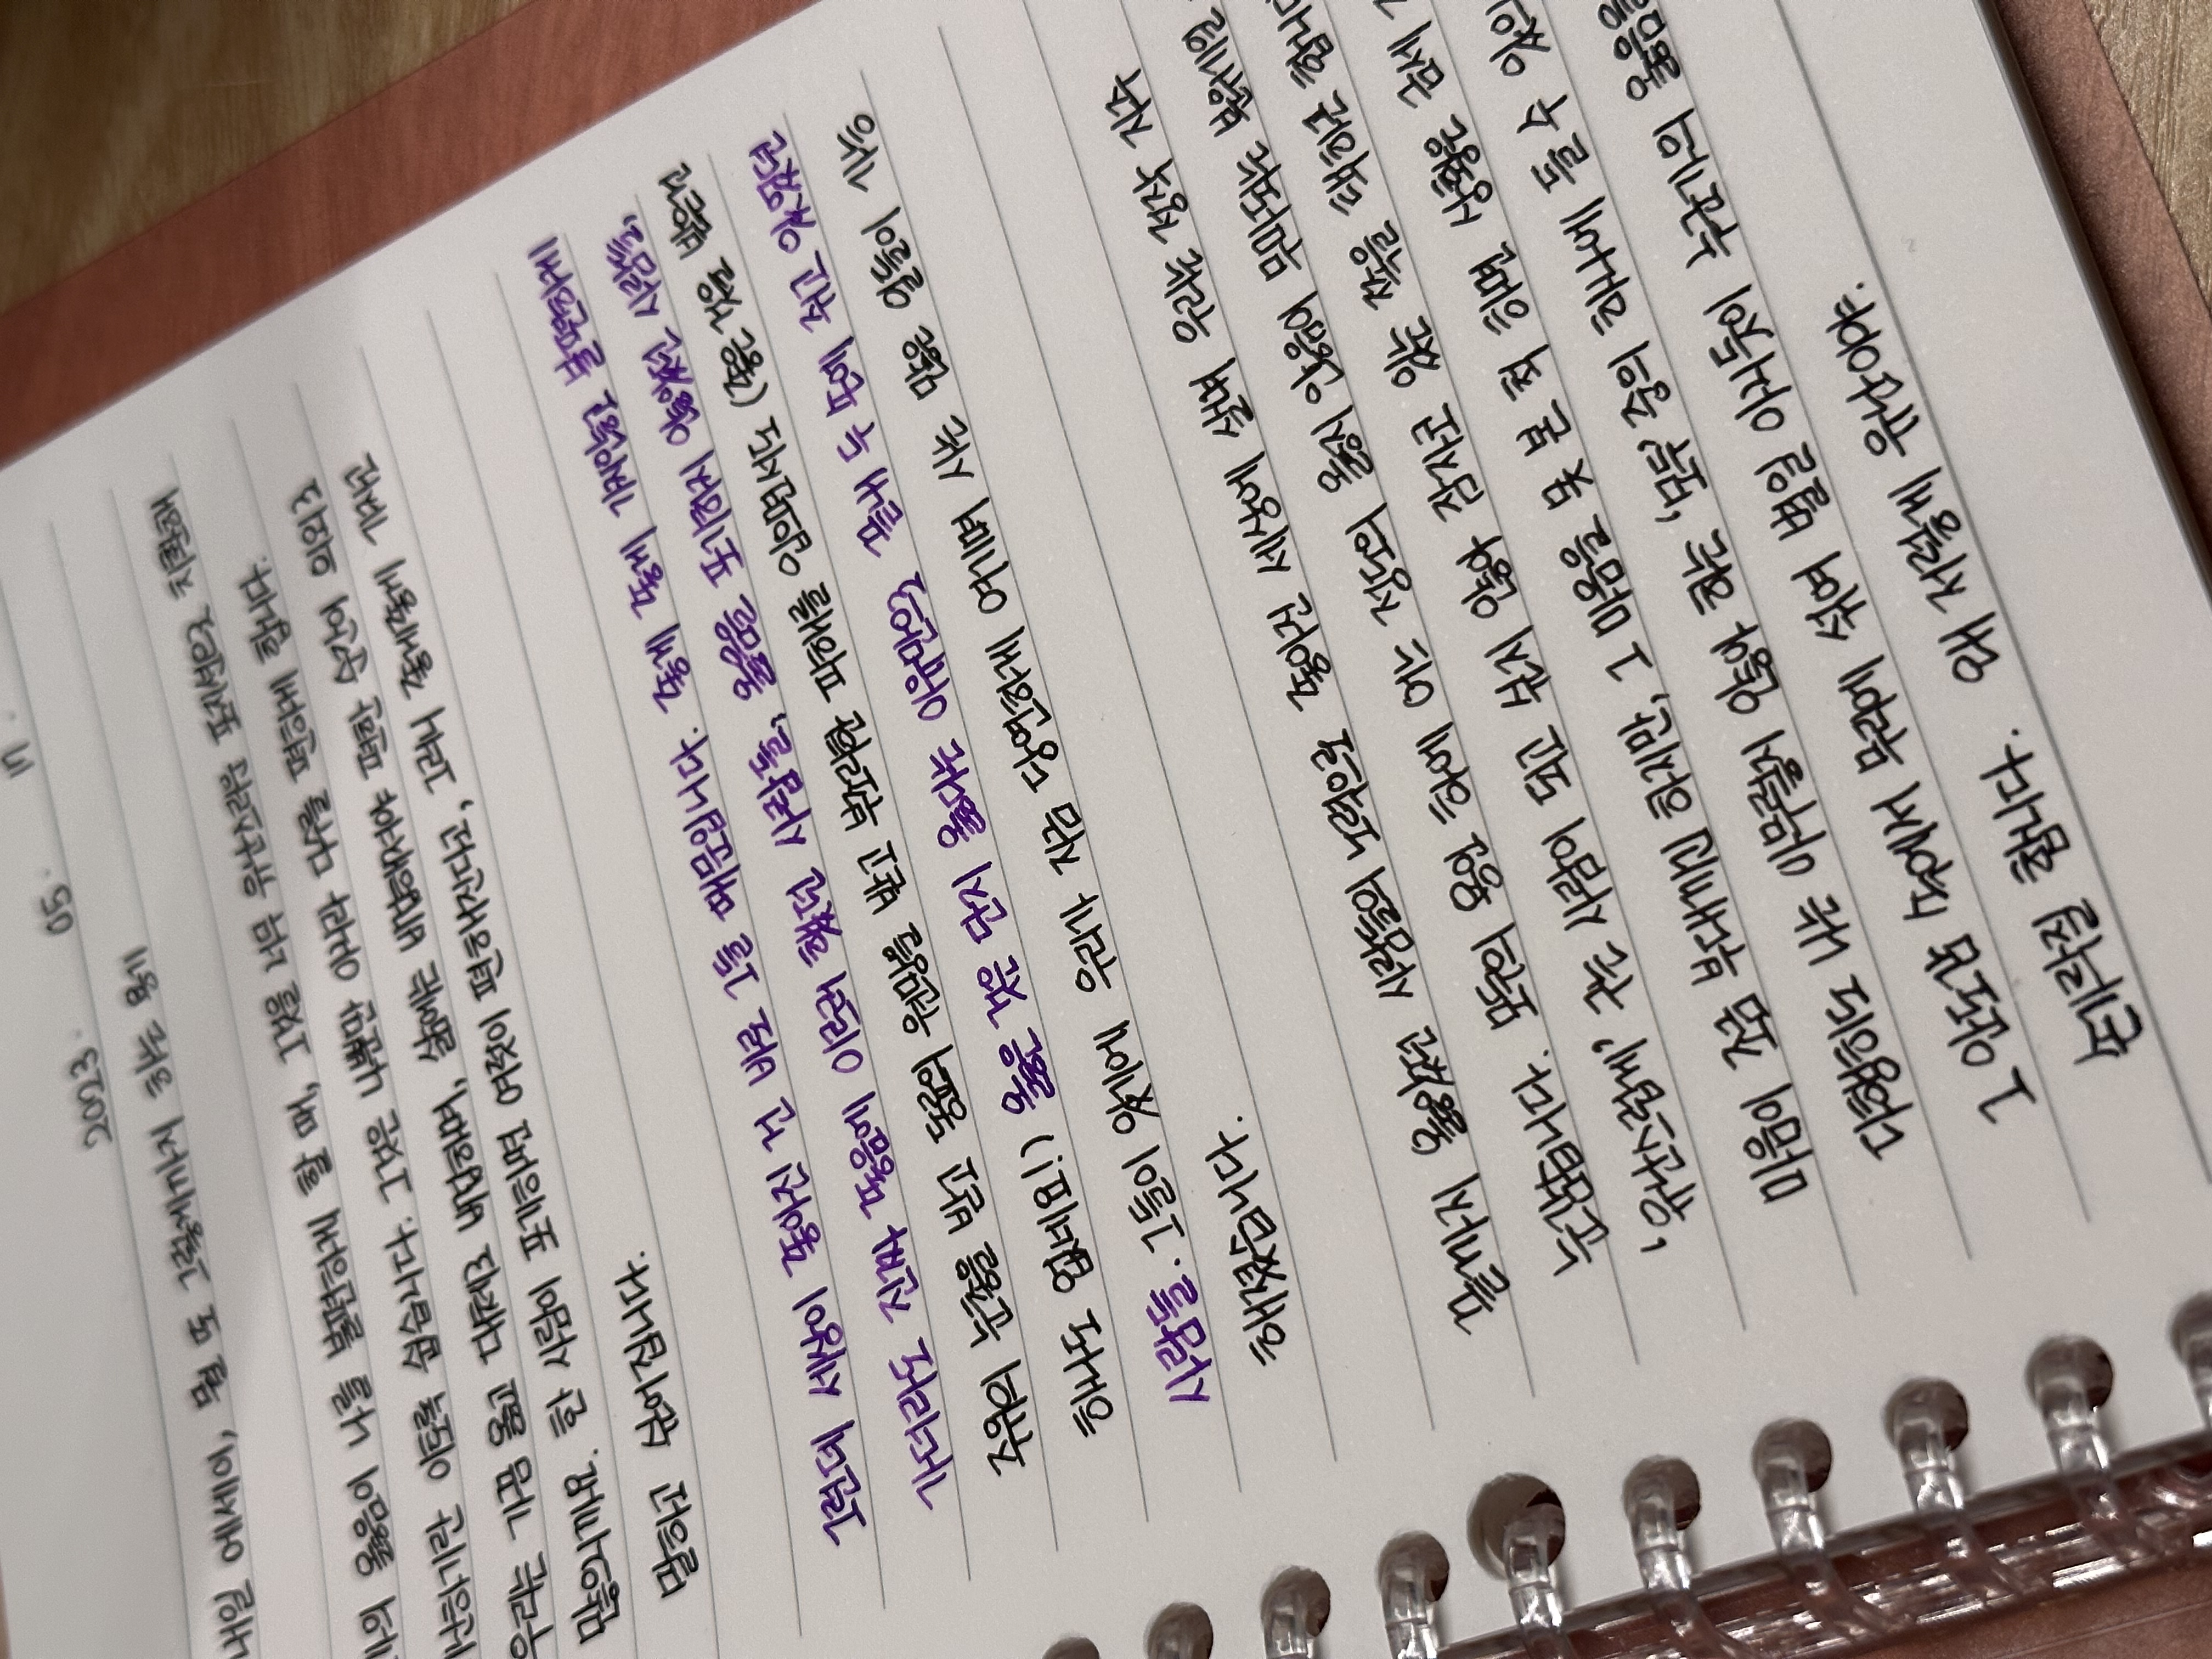 2023. 05. 17.
내일 에세이, 뭘 또 그렇게까지 하는 용기
옳음이 나를 불편하게 할 때, 그것을 너무 유난스러운 포지션으로 치환해
이토록 쉽습니다. 그것은 나뿐만 아니라 다수를 편하게 합니다.
우리는 가끔 옳고 대체로 비겁하며, 삶에는 비겁해져야 편한 순간이 의외로
많으니까요. 한 사람이 포기하면 여럿이 편해진다고, 그러니 좋게좋게 가자고
말하고 싶어집니다.
그런데 세상이 좋아진 건 바로 그들 때문입니다. 좋게 좋게 가지않고 불편하게
가더라도 진짜 좋음에 이르러 했던 사람들, 옳음을 포기하지 않았던 사람들,
주위의 눈총을 받고 동료의 원망을 받고 부조리한 피해를 입으면서도 (좋은 것을 받은건
하나도 없네요!) 옳은 것은 단지 옳다는 이유만으로 끝내 두 손에 쥐고 있었던
사람들. 그들이 있기에 우리가 지금 당연하게 여기며 사는 많은 일들이 가능
해졌습니다.
끝까지 옳았던 사람들의 노력으로 좋아진 세상에 살며 우리는 정작 자주
눈감습니다. 모두의 용인 하에 어느 정도의 옳지 않음이 무마되는 분위기일
'유난스럽게' 구는 사람이 되고 싶지 않아 잠자코 있는 쪽을 택하곤 합니다
마음이 조금 부대끼긴 하지만, 그 마음을 못 본 척 하면 상황은 금세
다행히도 나는 아무렇지 않아 하는 '모두' 중의 하나에 들 수 있으
그 안도감 속에서 무리에 섞여 별일 아니듯이 누군가의 옳음을
손가락질 합니다. 왜 저렇게 유난이야.